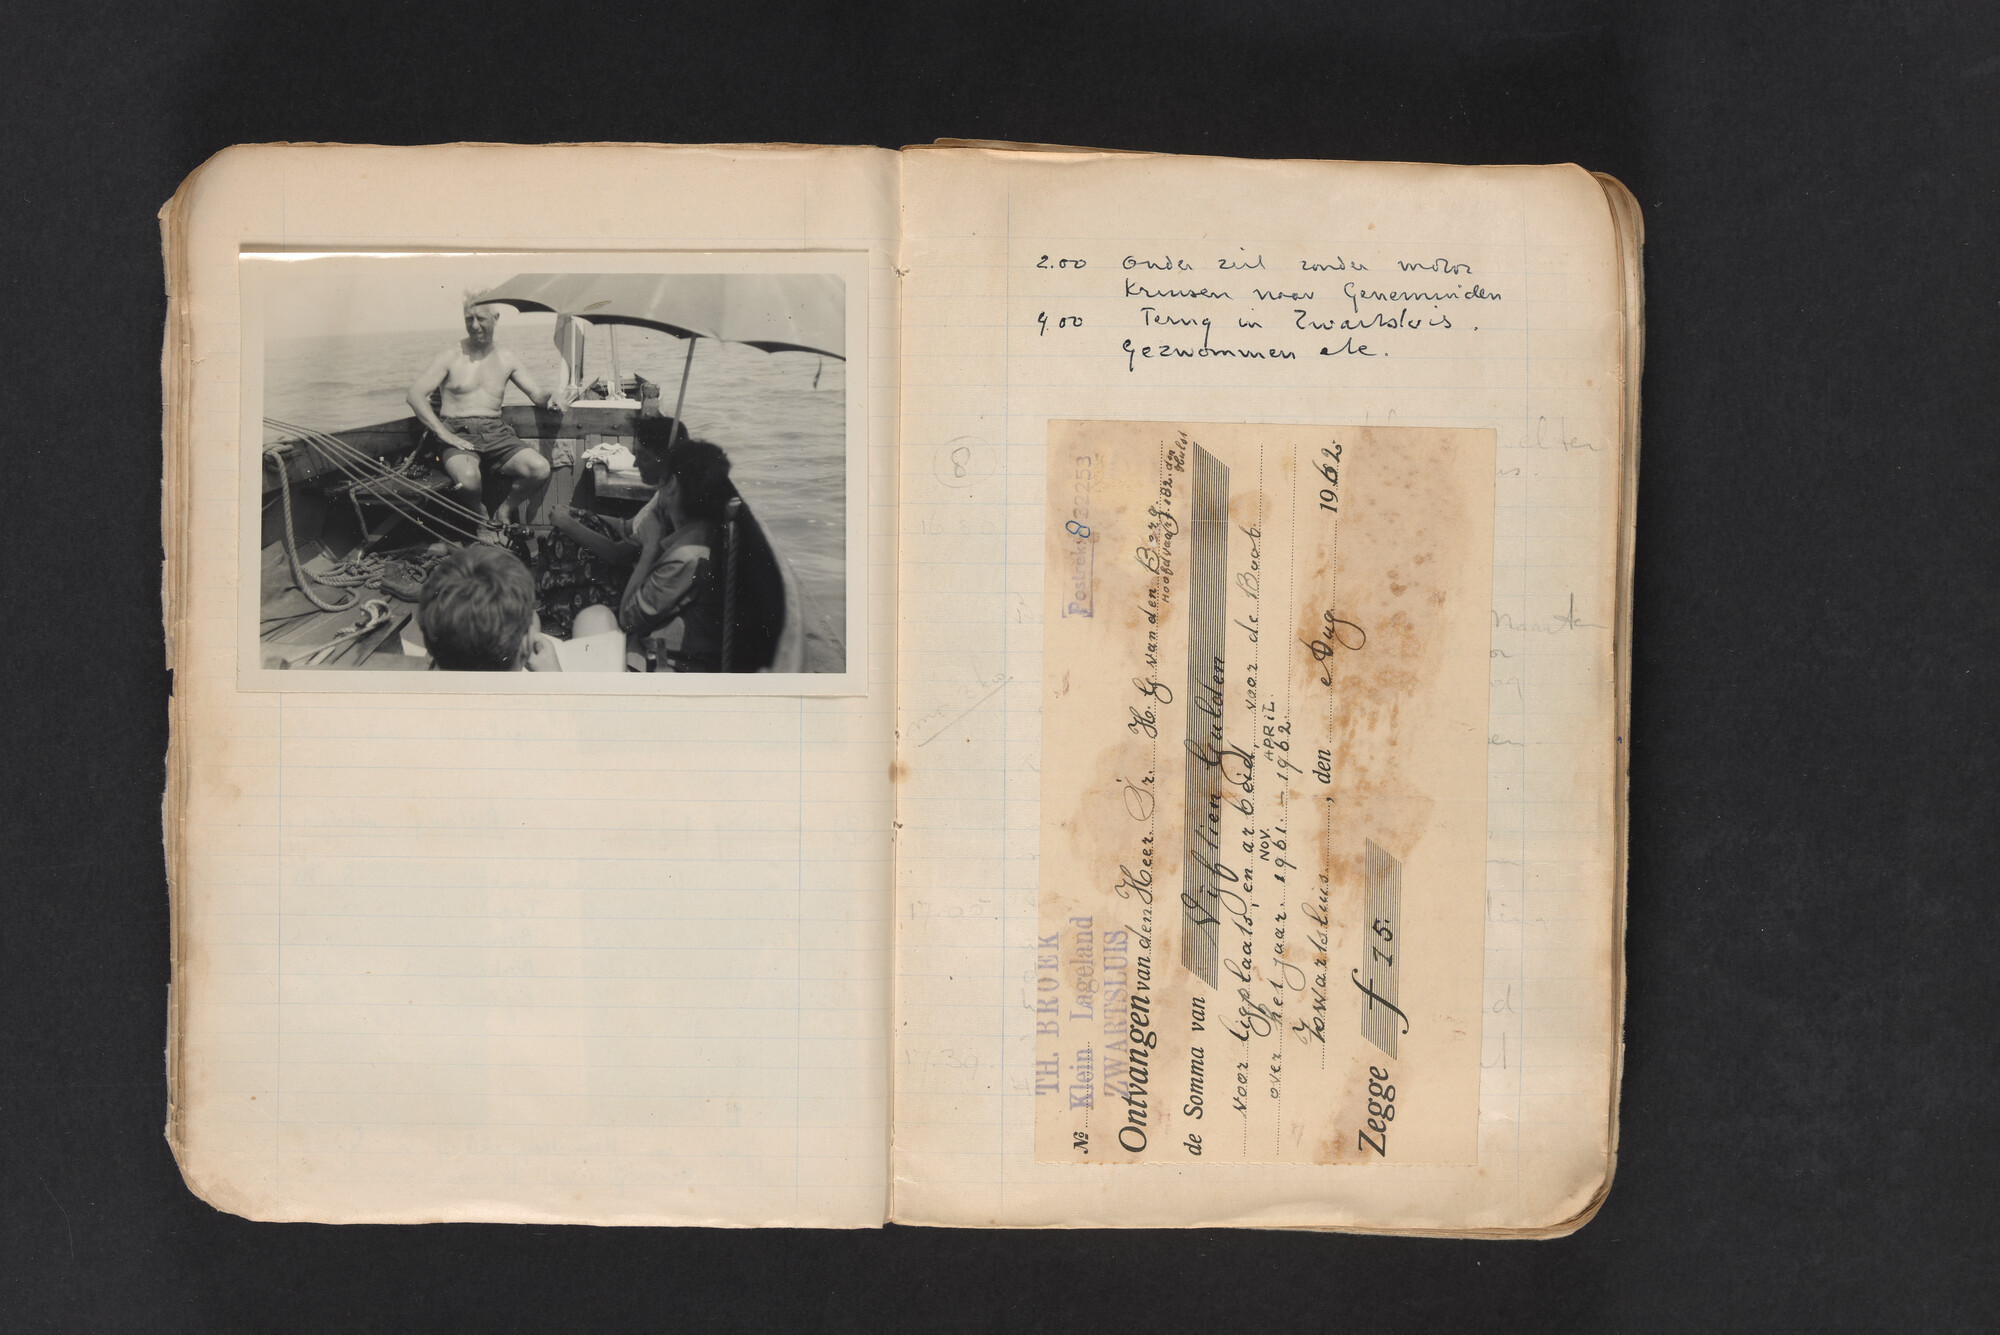 2.00 Onder zeil zonder motor
Kruisen naar Genemuiden
4.00 Terug in Zwartsluis.
Gezwommen etc.
TH. BROEK
Klein Lageland
ZWARTSLUIS
Nº
Ontvangen van den Heer Ir. H. G van den Berg
Hoofdvaart 182. den Hulst
de Somma van Vijftien Gulden
voor ligplaats, en arbeid, voor de Boot
NOV. APRIL
over het jaar 1961 - 1962
Zwartsluis, den Aug 1962
Zegge f 15.
8
16.30
17.00
17.30